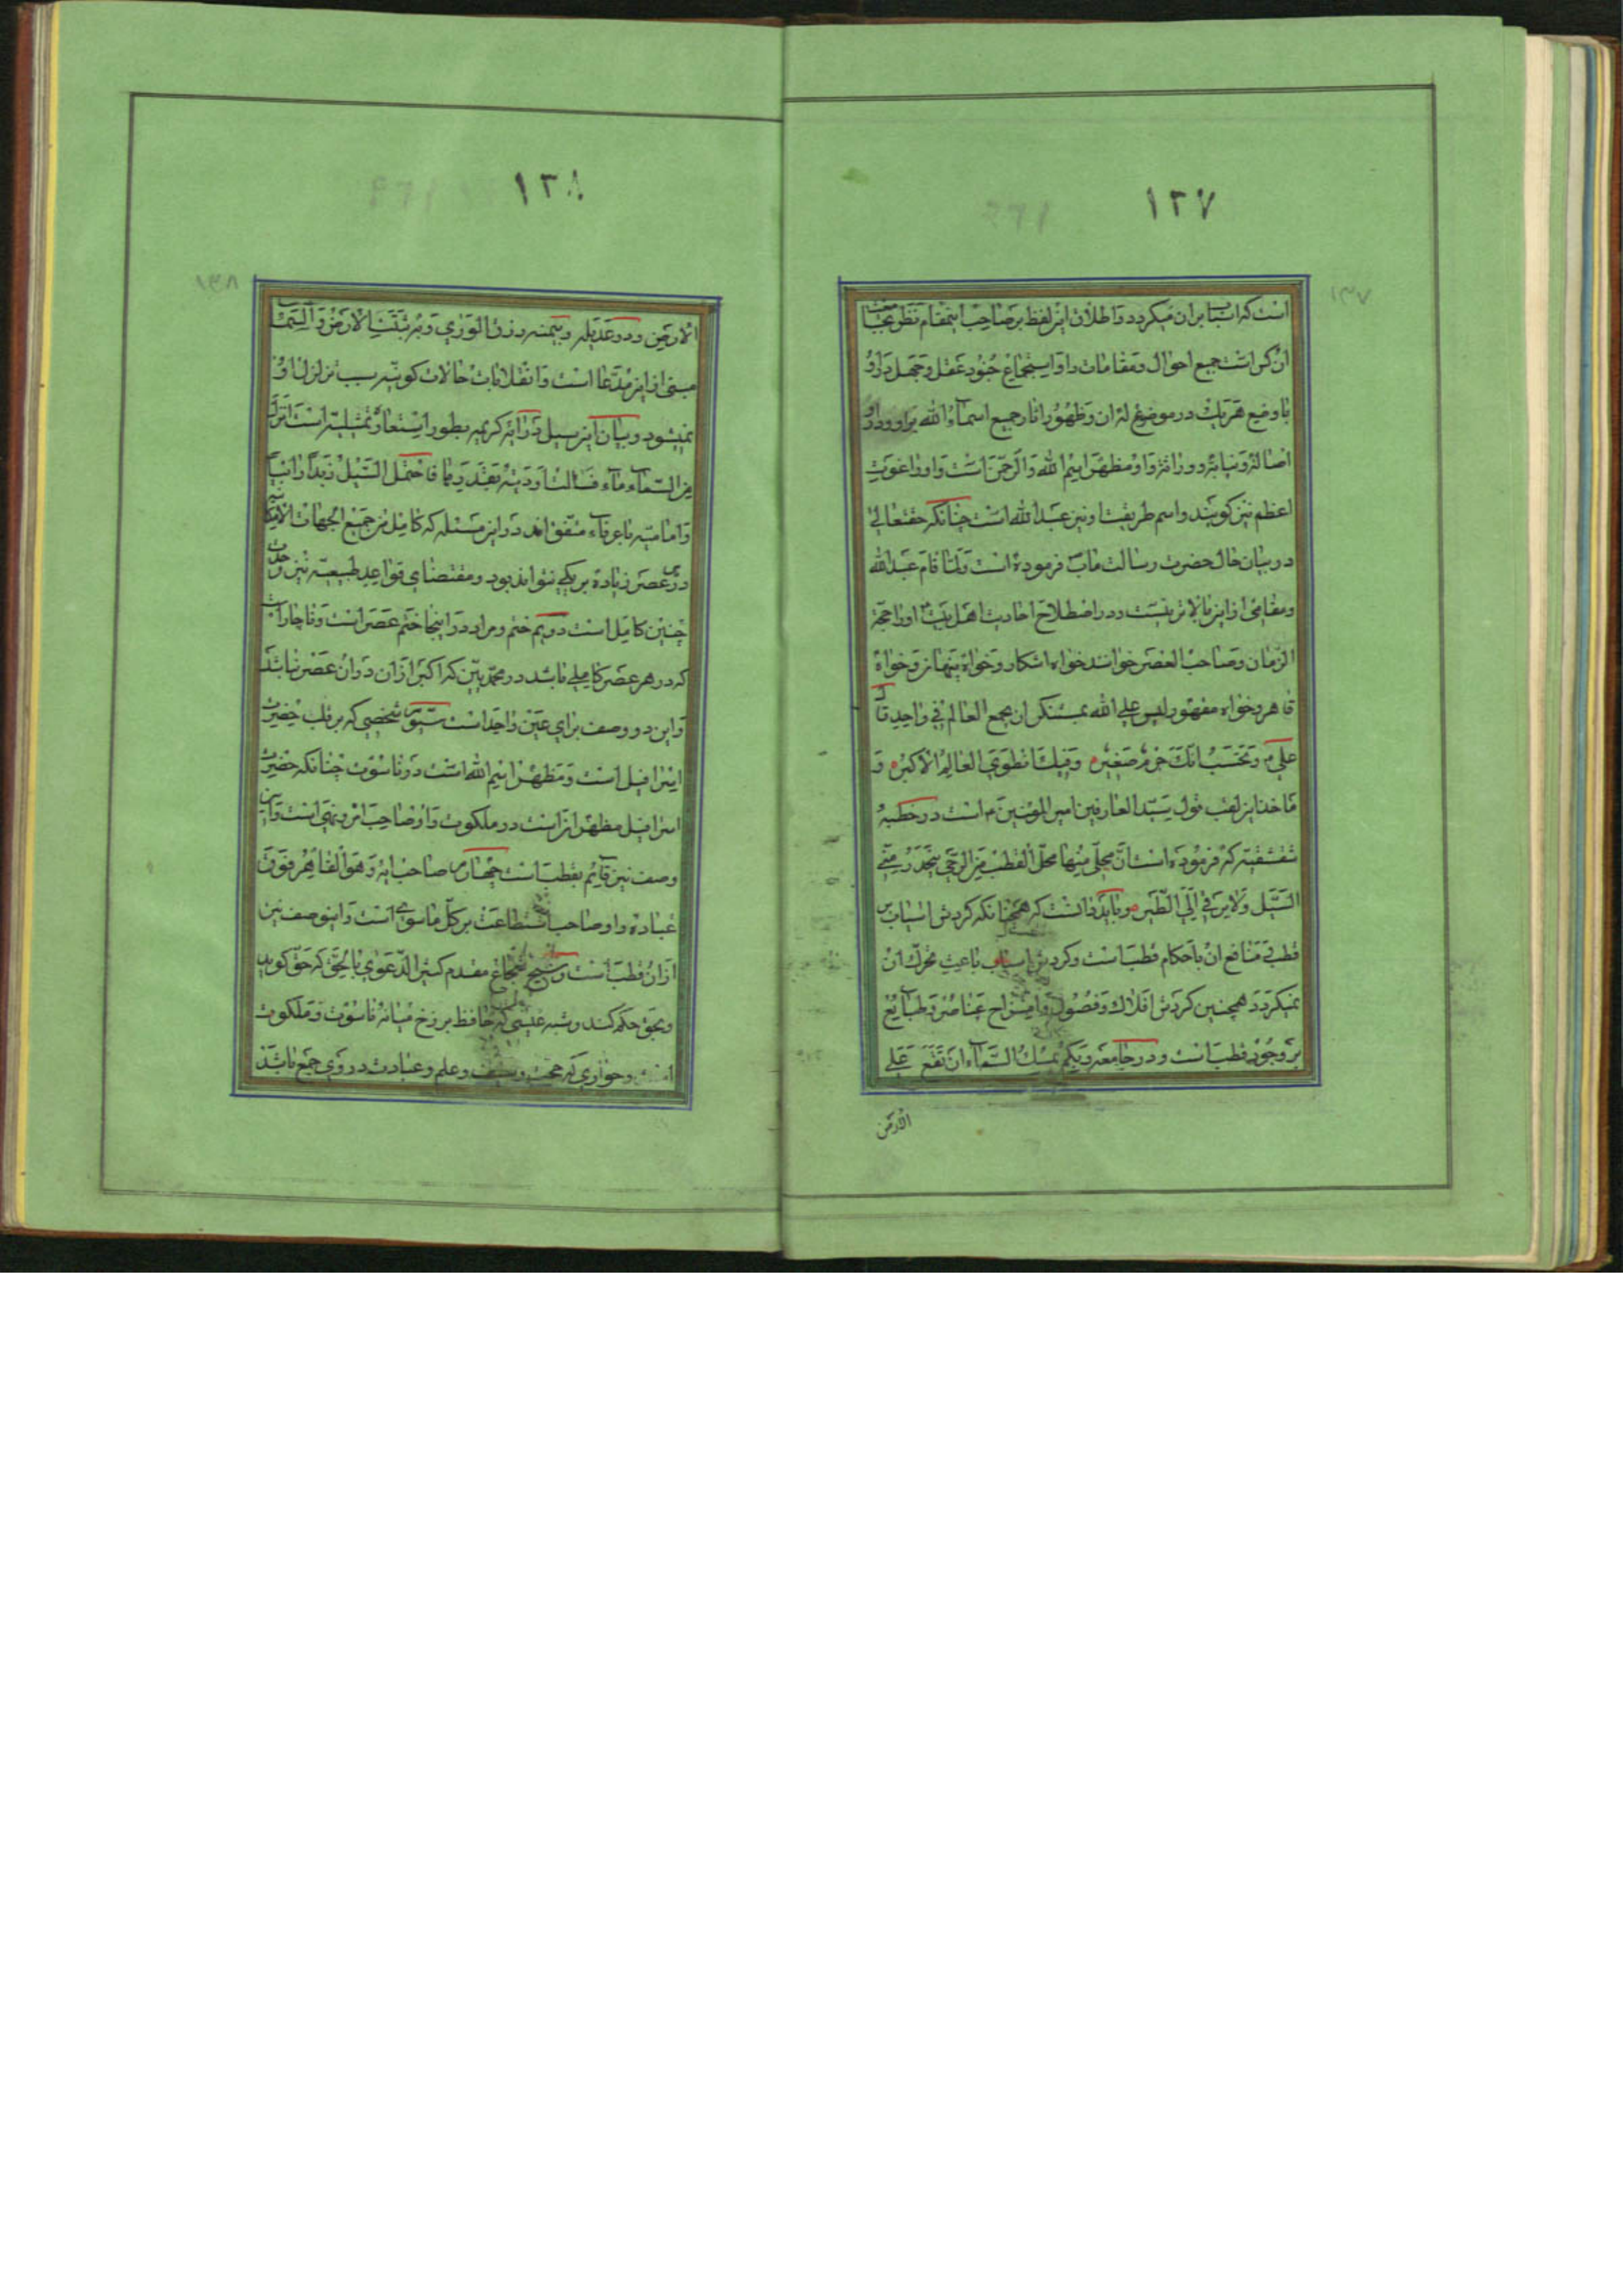 ۱۳۷
است که اسیاب بران میکردد و اطلاق این لفظ بر صاحب اینمقام نظر بجامعیت
ان کس است جمیع احوال و مقامات را و استجماع جنود عقل و جهل در او
با وضع هر یک در موضع له ان و ظهور اثار جمیع اسماء الله بر او و در او
اصالة و نیابة و وراثة و او مظهر اسم الله و الرحمن است و او را غوث
اعظم نیز کویند و اسم طریقت او نیز عبد الله است چنانکه حقتعالی
در بیان حال حضرت رسالت ماب فرموده است و لما قام عبد الله
و مقامی از این بالاتر نیست و در اصطلاح احادیث اهل بیت او را حجة
الزمان و صاحب العصر خوانند خواه اشکار و خواه پنهان و خواه
قاهر و خواه مقهور لیس علی الله بمستنکر ان یجمع العالم فی واحد قال
علی م و تحسب انک جرم صغیر و فیک انطوی العالم الاکبر و
ماخذ این لقب قول سید العارفین امیر المؤمنین م است در خطبه
شقشقیه که فرموده است ان محلی منها محل القطب من الرحی ینحدر منی
السیل و لا یرقی الی الطیر و باید دانست که همچنانکه کردش اسیاب بر
قطب و منافع ان باحکام قطب است و کردش اسیاب باعث تحرک ان
نمیکردد همچنین کردش افلاک و فصول و امتزاج عناصر و طبایع
بر وجود قطب است و در جامعه و بکم یمسک السماء ان تقع علی
الارض
۱۳۸
الارض و در عدیله و بیمنه رزق الوری و بوجوده ثبتت الارض و السماء
مبنی از این مدعا است و انقلابات حالات کونیه سبب تزلزل او
نمیشود و بیان این سیل در ایه کریمه بطور استعاره تمثیلیه است انزل
من السماء ماء فسالت اودیة بقدرها فاحتمل السیل زبدا رابیا
و امامیه با عرفاء متفق اند در این مسئله که کامل من جمیع الجهات الامکانیه
در هر عصر زیاده بر یکی نتواند بود و مقتضای قواعد طبیعیه نیز وحدت
چنین کامل است دویم ختم و مراد در اینجا ختم عصر است و ناچار است
که در هر عصر کاملی باشد در محمدیین که اکبر از ان در ان عصر نباشد
و این دو وصف برای عین واحد است سیوم شخصی که بر قلب حضرت
اسرافیل است و مظهر اسم الله است در ناسوت چنانکه حضرت
اسرافیل مظهر انست در ملکوت و او صاحب امر و نهی است و این
وصف نیز قایم بقطب است چهارم صاحب ایه و هو القاهر فوق
عباده و او صاحب استطاعت بر کل ما سوی است و اینوصف نیز
از ان قطب است و شجاع مقدم کثیر الدعوی بالحق که حق کوید
و بحق حکم کند و شبه عیسی که حافظ برزخ میانه ناسوت و ملکوت
است و حواری که حجت و سیف و علم و عبادت در وی جمع باشد